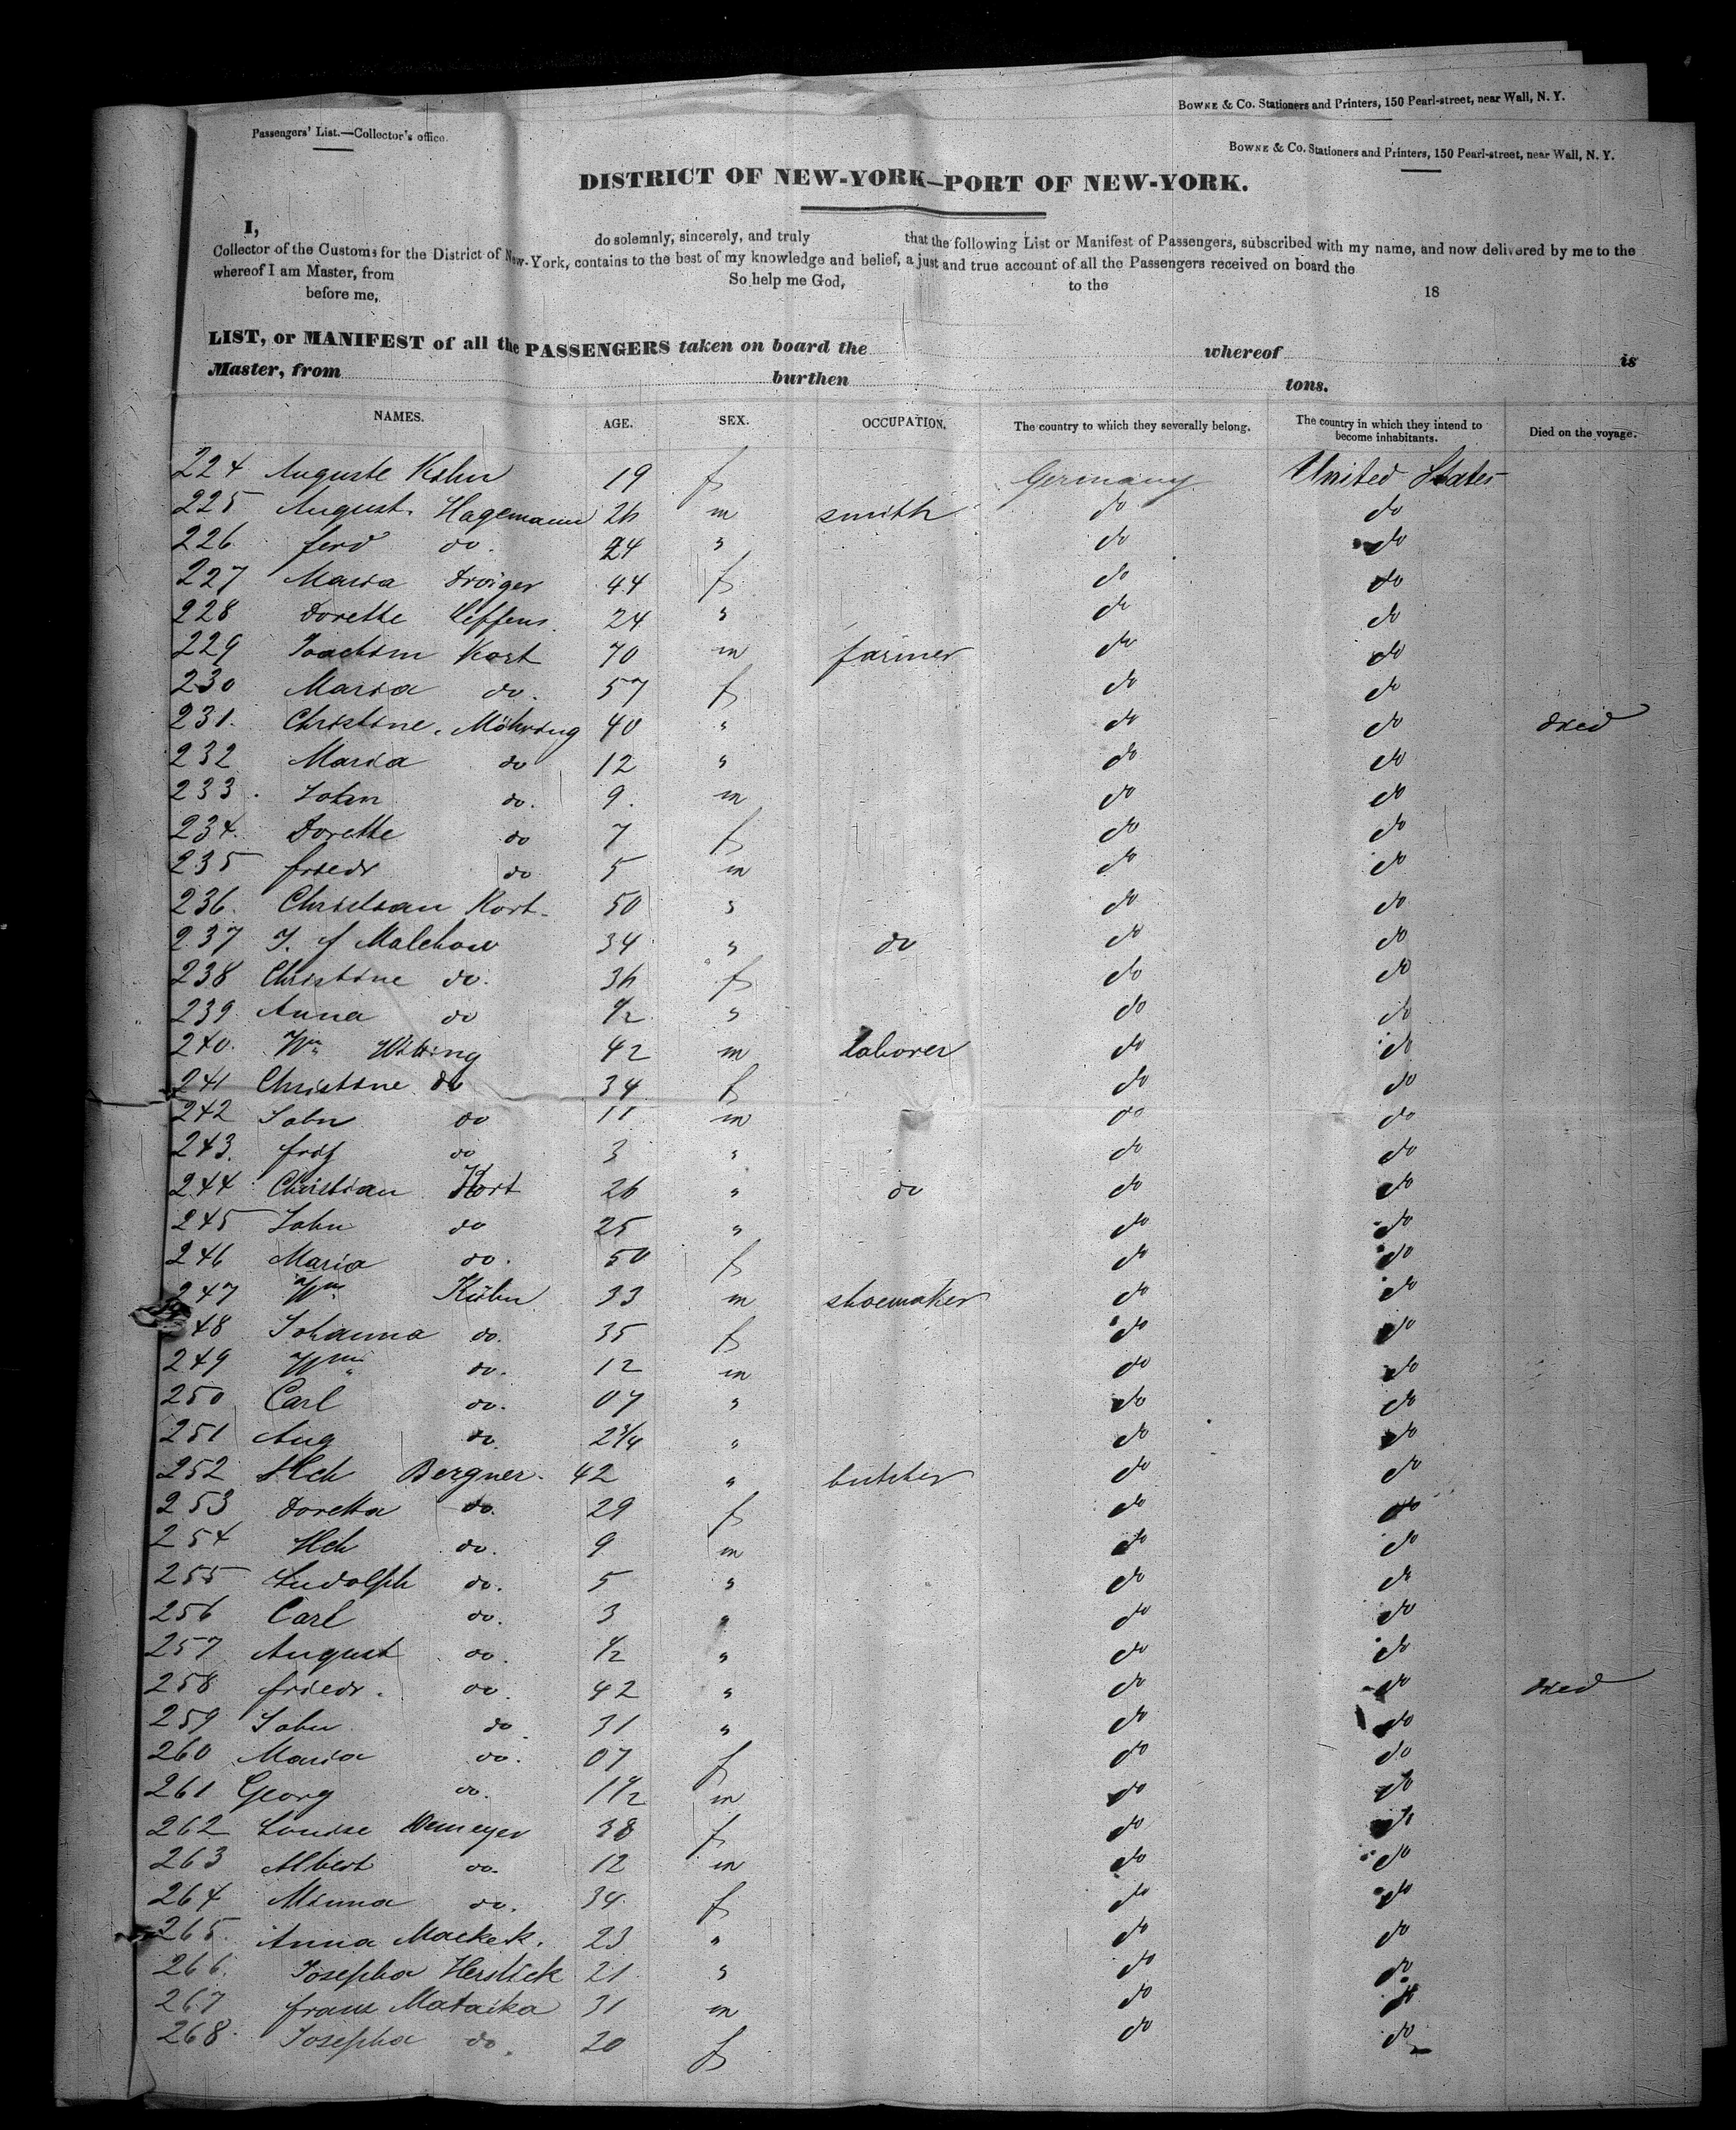 Bowne & Co. Stationers and Printers, 150 Pearl-street, near Wall, N. Y.
Passengers' List.—Collector's office.
Bowne & Co. Stationers and Printers, 150 Pearl-street, near Wall, N. Y.
DISTRICT OF NEW-YORK—PORT OF NEW-YORK.
I, do solemnly, sincerely, and truly that the following List or Manifest of Passengers, subscribed with my name, and now delivered by me to the
Collector of the Customs for the District of New-York, contains to the best of my knowledge and belief, a just and true account of all the Passengers received on board the
whereof I am Master, from So help me God, to the
before me, 18
LIST, or MANIFEST of all the PASSENGERS taken on board the whereof is
Master, from burthen tons.
NAMES. AGE. SEX. OCCUPATION. The country to which they severally belong. The country in which they intend to become inhabitants. Died on the voyage.
224 Auguste 19 f Germany United States
225 August. Hagemann 26 m smith do do
226 ferd do. 24 " do do
227 Maria 44 f do do
228 Dorette 24 " do do
229 Joachim Kort 70 m farmer do do
230 Maria do. 57 f do do
231. Christine. Möhring 40 " do do died
232 Maria do 12 " do do
233. John do. 9. m do do
234. Dorette do 7 f do do
235 friedr do 5 m do do
236. Christian Kort. 50 " do do
237 J. f Malchow 34 " do do do
238 Christine do. 36 f do do
239. Anna do 1/2 " do do
240. Wm Witting 42 m laborer do do
241 Christine do 34 f do do
242 John do 11 m do do
243. friz do 3 " do do
244 Christian Kort 26 " do do do
245 John do 25 " do do
246 Maria do. 50 f do do
247 Wm Kühn 33 m shoemaker do do
248 Johanna do. 35 f do do
249 Wm do. 12 m do do
250 Carl do. 07 " do do
251 Aug do. 2 3/4 " do do
252 Hch Bergner. 42 " butcher do do
253 Doretta do. 29 f do do
254 Hch do. 9 m do do
255 Ludolph do. 5 " do do
256 Carl do. 3 " do do
257 August do. 1/2 " do do
258 friedr. do. 42 " do do died
259 John do 31 " do do
260 Maria do. 07 f do do
261 Georg do. 1 1/2 m do do
262 Louise 38 f do do
263 Albert do. 12 m do do
264 Minna do. 34. f do do
265. Anna 23 " do do
266. Josepha Herslick 21 " do do
267 franz Mataika 31 m do do
268. Josepha do. 20 f do do